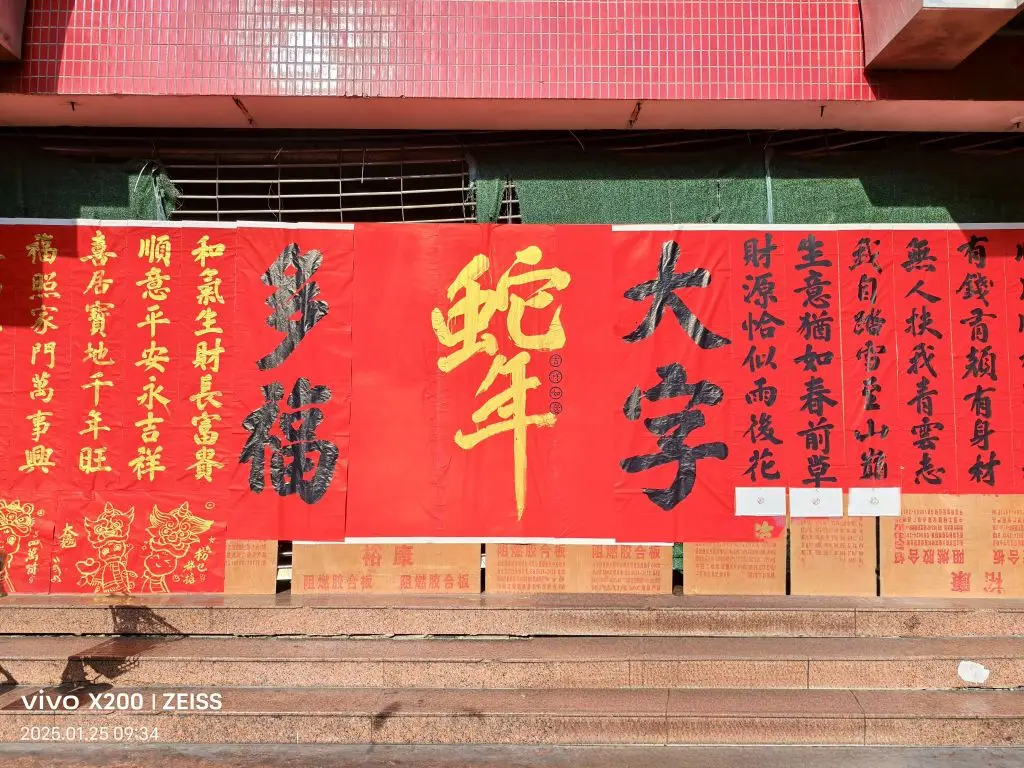 有錢有顏有身材
無人扶我青雲志
我自踏雪至山巔
生意猶如春前草
財源恰似雨後花
大字
蛇年
吉祥如意
多福
和氣生財長富貴
順意平安永吉祥
喜居寶地千年旺
福照家門萬事興
裕康
阻燃胶合板
阻燃胶合板
阻燃胶合板
阻燃胶合板
阻燃胶合板
阻燃胶合板
裕康
vivo X200 | ZEISS
2025.01.25 09:34